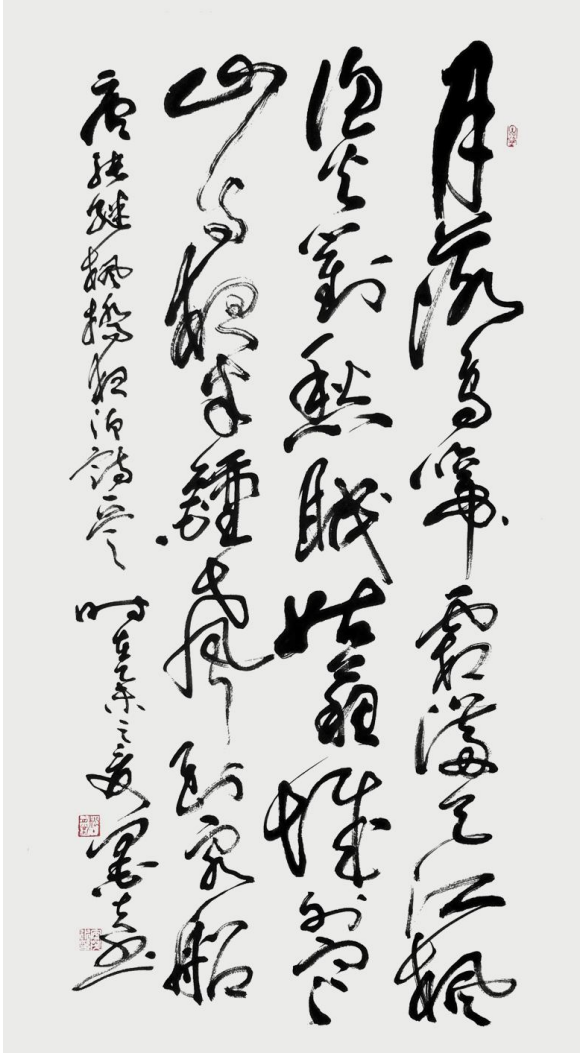 月落烏啼霜滿天江楓
漁火對愁眠姑蘇城外寒
山寺夜半鐘聲到客船
唐張繼楓橋夜泊詩一首 時在乙未之夏